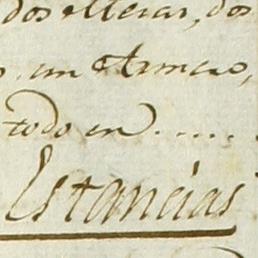 dos Mesas, dos
un Armario,
todo en . . . . .
Estancias